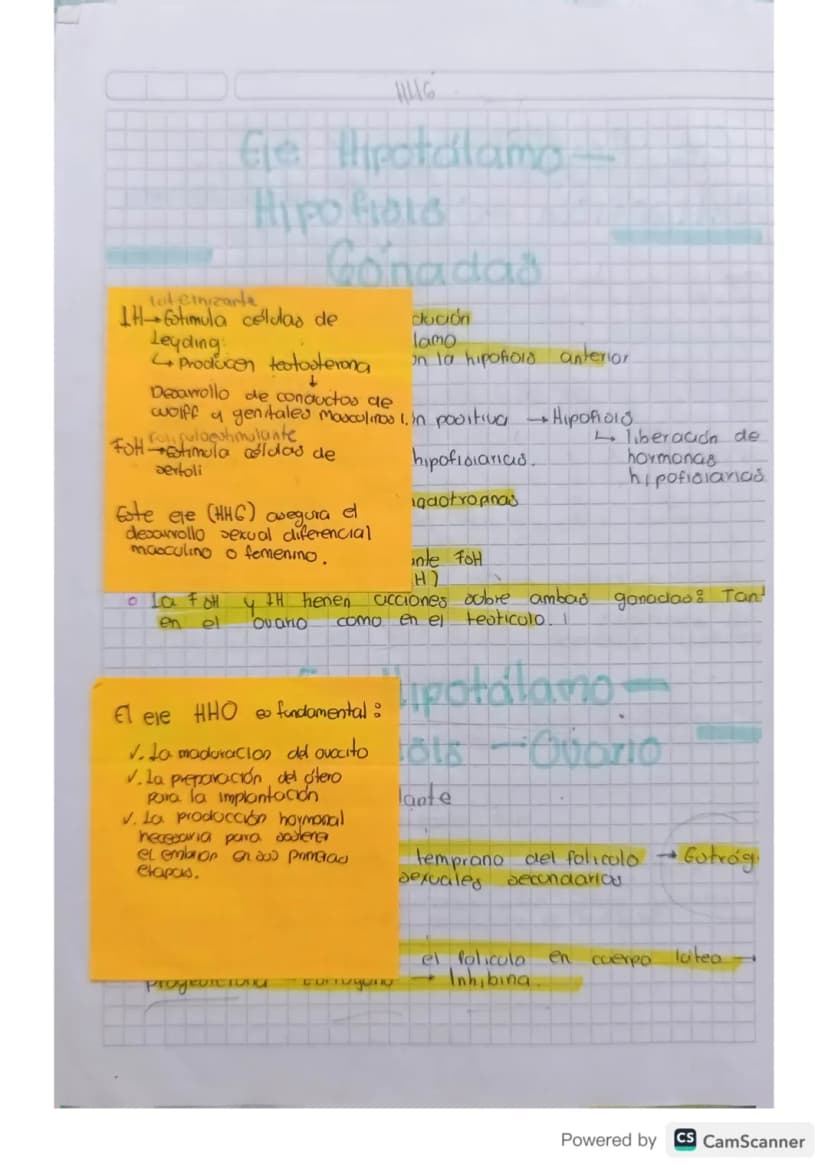 HHG
Eje Hipotálamo —
Hipofisis
Gónadas
luteinizante
LH → Estimula células de
Leyding.
↳ Producen testosterona
↓
Desarrollo de conductos de
wolff y genitales masculinos
foliculoestimulante
FSH → Estimula células de
sertoli
Este eje (HHG) asegura el
desarrollo sexual diferencial
masculino o femenino.
ducción
lamo
en la hipofisis anterior
ón positiva → Hipofisis
↳ liberación de
hormonas
hipofisiarias
hipofisiarias.
nadotropinas
ante FSH
H)
o La FSH y LH tienen acciones sobre ambas gonadas: Tant
en el ovario como en el testiculo.
Hipotálamo —
isis — Ovario
El eje HHO es fundamental:
✓. La maduración del ovocito
✓. La preparación del útero
para la implantación
✓. La producción hormonal
necesaria para sostener
el embrion en sus primeras
etapas.
lante
temprano del foliculo → Estróg
sexuales secundarios
el foliculo en cuerpo luteo →
progesterona estrogeno → Inhibina.
Powered by CS CamScanner